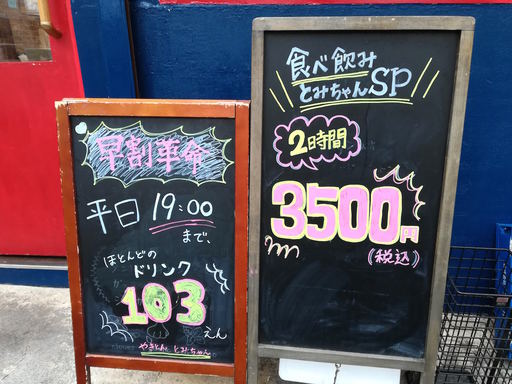 早割革命
平日 19:00
まで、
ほとんどの
ドリンク
103
えん
やきとん とみちゃん
食べ飲み
とみちゃんSP
2時間
3500円
(税込)